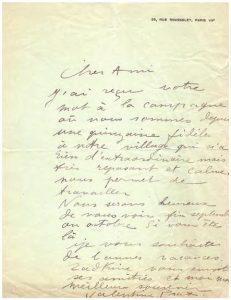 26, RUE ROUSSELET, PARIS VIIᵉ
Cher Ami
J'ai reçu votre
mot à la campagne
où nous sommes depuis
une quinzaine fidèles
à notre village qui n'a
rien d'extraordinaire mais
très reposant et calme
nous permet de
travailler
Nous serons heureux
de vous voir fin septembre
ou octobre si vous êtes
là
je vous souhaite
de bonnes vacances
vous envoie
ses amitiés et moi mon
meilleur souvenir
Valentine Prax